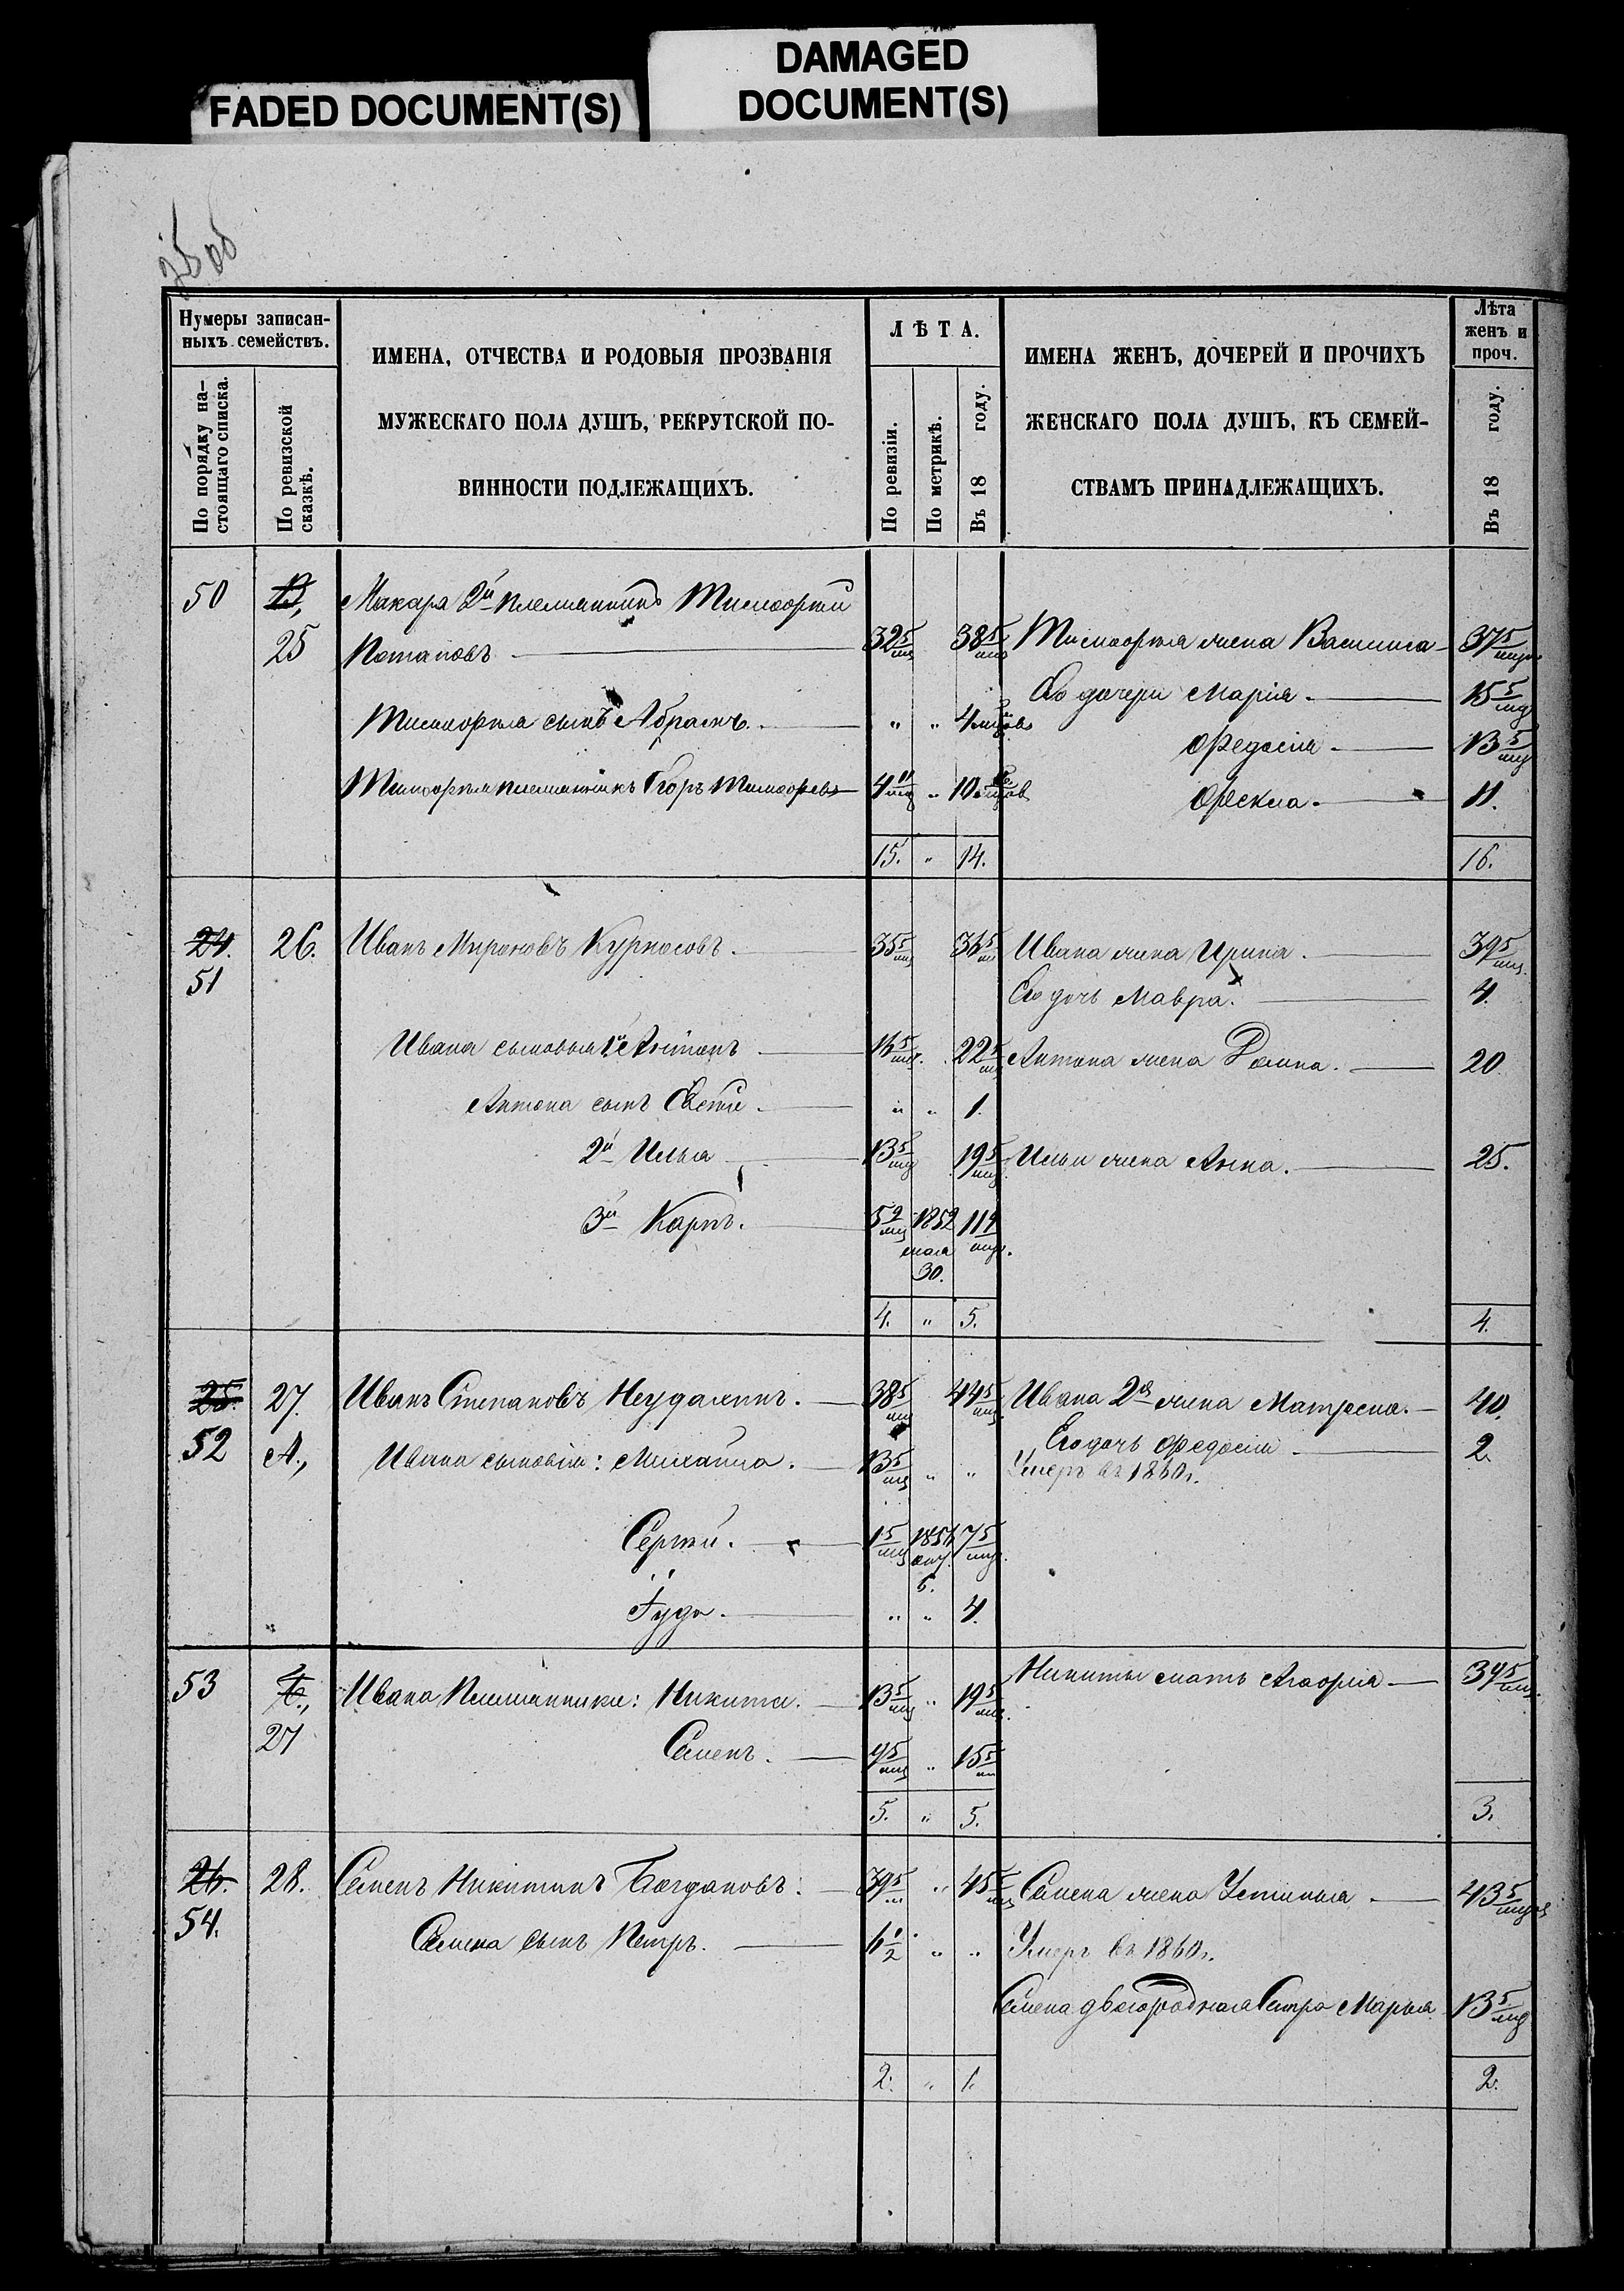 FADED DOCUMENT(S)
DAMAGED
DOCUMENT(S)
25 об
Нумеры записан-
ныхъ семействъ.
По порядку на-
стоящаго списка.
По ревизской
сказкѣ.
ИМЕНА, ОТЧЕСТВА И РОДОВЫЯ ПРОЗВАНІЯ
МУЖЕСКАГО ПОЛА ДУШЪ, РЕКРУТСКОЙ ПО-
ВИННОСТИ ПОДЛЕЖАЩИХЪ.
ЛѢТА.
По ревизіи.
По метрикѣ.
Въ 18 году.
ИМЕНА ЖЕНЪ, ДОЧЕРЕЙ И ПРОЧИХЪ
ЖЕНСКАГО ПОЛА ДУШЪ, КЪ СЕМЕЙ-
СТВАМЪ ПРИНАДЛЕЖАЩИХЪ.
Лѣта
женъ и
проч.
Въ 18 году.
50 Макара 2й племянникъ Тимофей
25 Потаповъ 32 5/мц 38 5/мц Тимофея жена Василиса 37 5/мцов
Его дочери Марія 15 5/мц
Тимофея сынъ Абрамъ. " " 4 мцов
Федосія 13 5/мц
Тимофея племянникъ Егоръ Тимофеевъ 4 11/мц " 10 мцов Фекла. 11.
15. " 14. 16.
24. 26. Иванъ Мироновъ Курносовъ. 35 5/мц 36 5/мц Ивана жена Ирина. 39 5/мц.
51 Его дочь Мавра. 4.
Ивана сыновья 1й Антонъ 16 5/мц. 22 5/мц Антона жена Домна. 20.
Антона сынъ " " 1.
2й Илья 13 5/мц 19 5/мц Ильи жена Анна. 25.
3й Карпъ. 5 9/мц 1852 11 4/мц.
мая
30.
4. " 5. 4.
25. 27. Иванъ Степановъ Неудахинъ. 38 5/мц 44 5/мц Ивана 2я жена Матрена. 40.
52 А., Его дочь Федосія 2.
Ивана сыновья: Михаила. 13 5/мц " " Умеръ въ 1860 г.
Сергѣй. 1 5/мц 1856 7 5/мц.
6.
Іуда. " " 4.
53 Ивана племянники: Никита. 13 5/мц " 19 5/мц. Никиты мать Агафія 34 5/мц.
27
Семенъ. 9 5/мц " 15 5/мц
5. " 5. 3.
26. 28. Семенъ Никитинъ Богдановъ. 39 5/м " 45 5/мц Семена жена Устинья 43 5/мцов
54. Семена сынъ Петръ. 6 1/2 " " Умеръ въ 1860 г.
Семена двоюродная сестра Марья. 13 5/мц
2. " 1. 2.